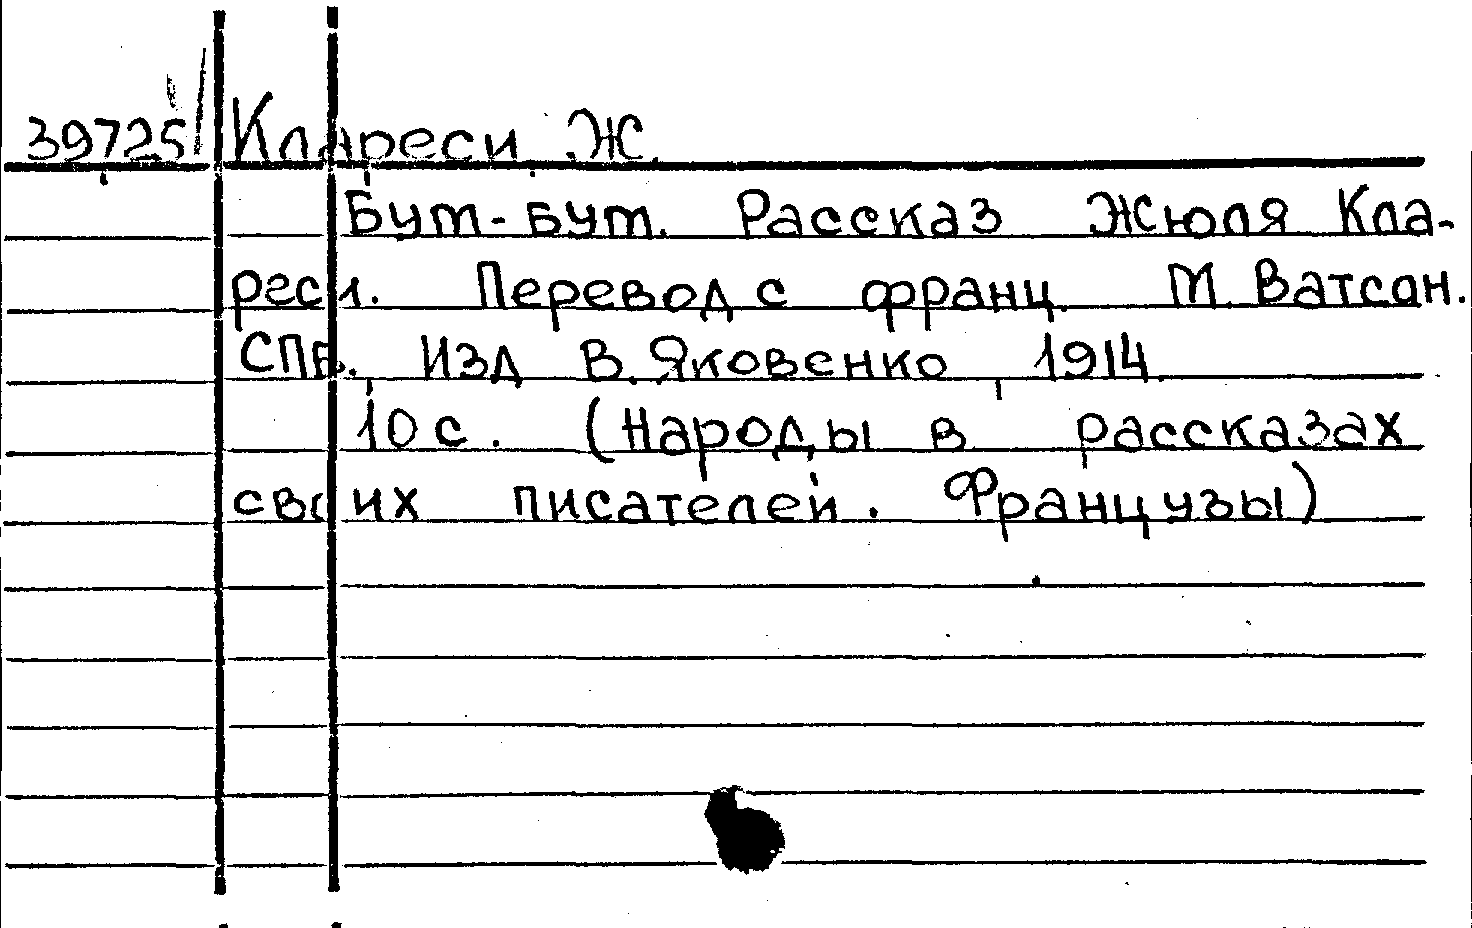 39725 Клареси Ж.
Бум-бум. Рассказ Жюля Кла-
реси. Перевод с франц. М. Ватсон.
СПБ. Изд В. Яковенко 1914.
10 с. (Народы в рассказах
своих писателей. Французы)